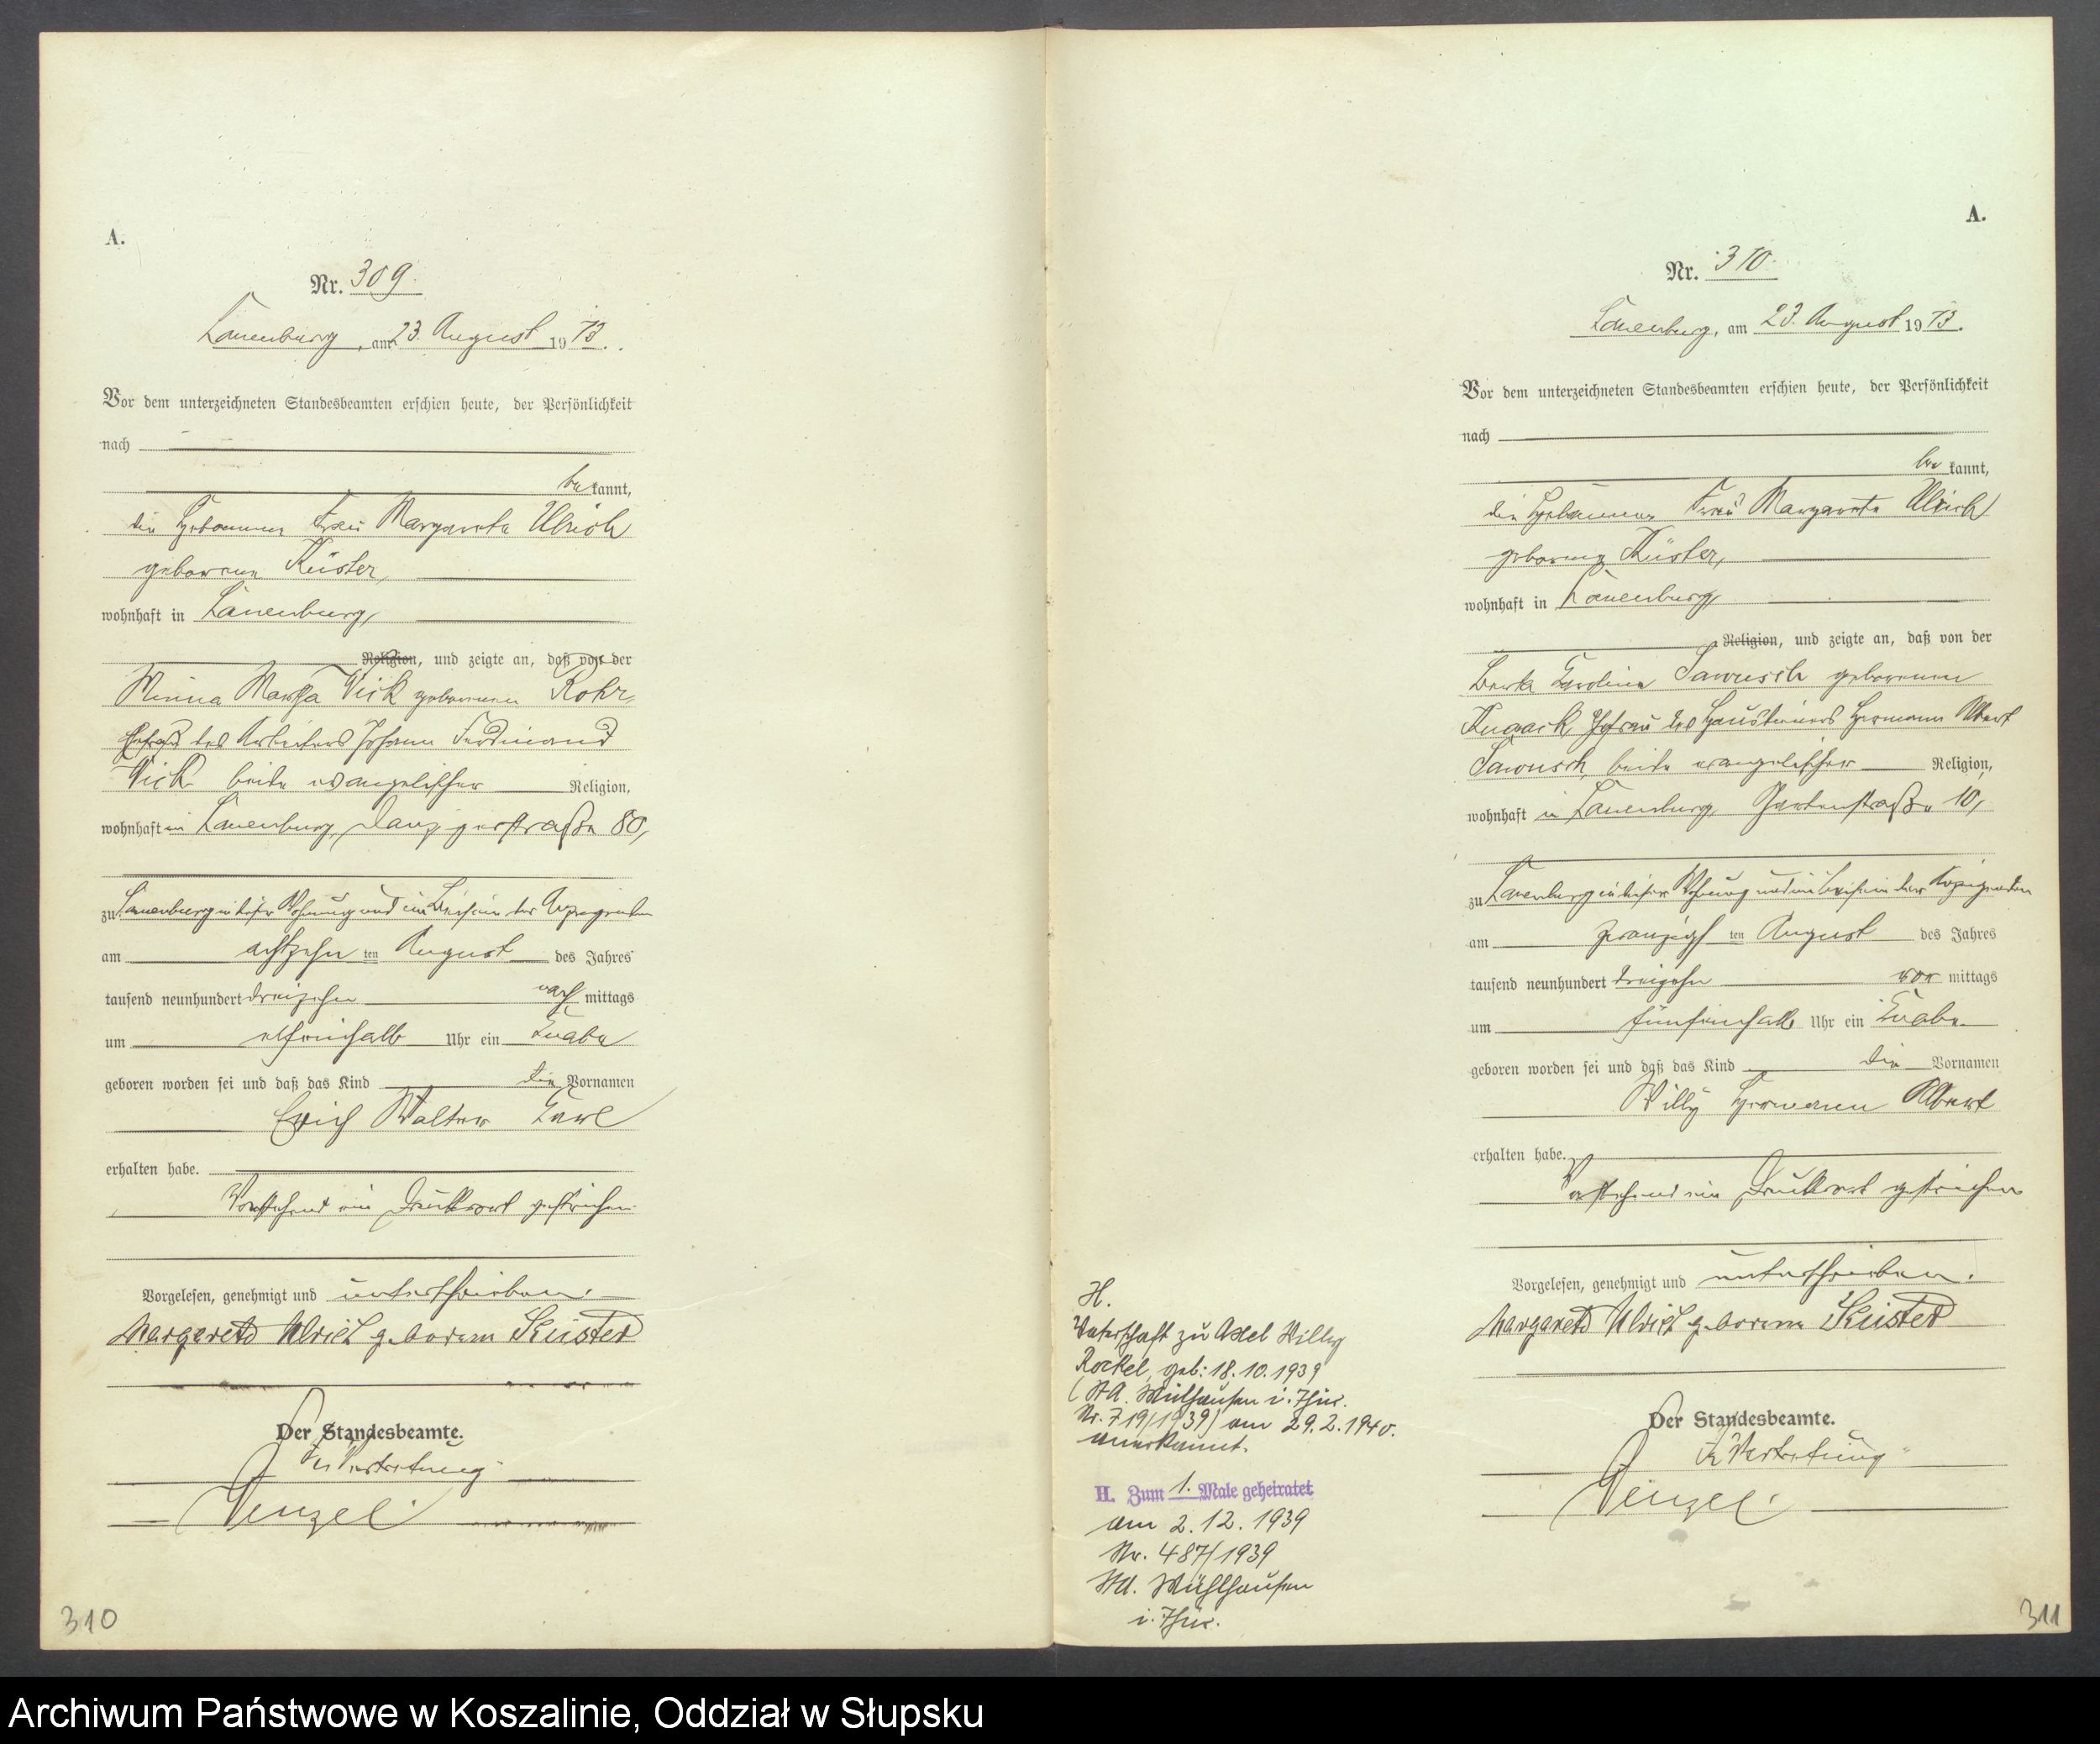 A.
Nr. 309.
Lauenburg, am 23. August 1913.
Vor dem unterzeichneten Standesbeamten erschien heute, der Persönlichkeit
nach
bekannt,
die Hebamme Frau Margarete Ulrich
geborene Küster,
wohnhaft in Lauenburg,
Religion, und zeigte an, daß von der
Minna Martha Vick geborenen Rohr,
Ehefrau des Arbeiters Johann Ferdinand
Vick beide evangelischer Religion,
wohnhaft in Lauenburg, Danzigerstraße 80,
zu Lauenburg in dieser Wohnung und im Beisein der Anzeigenden
am achtzehnten August des Jahres
tausend neunhundert dreizehn nachmittags
um elfeinhalb Uhr ein Knabe
geboren worden sei und daß das Kind die Vornamen
Erich Walter Karl
erhalten habe.
Vorstehend ein Druckwort gestrichen.
Vorgelesen, genehmigt und unterschrieben.
Margarete Ulrich geborene Küster
Der Standesbeamte.
In Vertretung
Wenzel.
310
A.
Nr. 310.
Lauenburg, am 23. August 1913.
Vor dem unterzeichneten Standesbeamten erschien heute, der Persönlichkeit
nach
bekannt,
die Hebamme Frau Margarete Ulrich
geborene Küster,
wohnhaft in Lauenburg,
Religion, und zeigte an, daß von der
Karoline geborenen
Ehefrau des Hausdieners Hermann Albert
beide evangelischer Religion,
wohnhaft in Lauenburg, Gartenstraße 10,
zu Lauenburg in dieser Wohnung und im Beisein der Anzeigenden
am zwanzigsten August des Jahres
tausend neunhundert dreizehn vormittags
um fünfeinhalb Uhr ein Knabe
geboren worden sei und daß das Kind die Vornamen
Willy Hermann Albert
erhalten habe.
Vorstehend ein Druckwort gestrichen
Vorgelesen, genehmigt und unterschrieben.
Margarete Ulrich geborene Küster
Der Standesbeamte.
In Vertretung
Wenzel.
H.
Vaterschaft zu Axel Willy
Rockel, geb: 18.10.1939
(StA. Mülhausen i. Thür.
Nr. 719/1939) am 29.2.1940.
anerkannt.
H. Zum 1. Male geheiratet
am 2.12.1939
Nr. 487/1939
StA. Mühlhausen
i. Thür.
311
Archiwum Państwowe w Koszalinie, Oddział w Słupsku